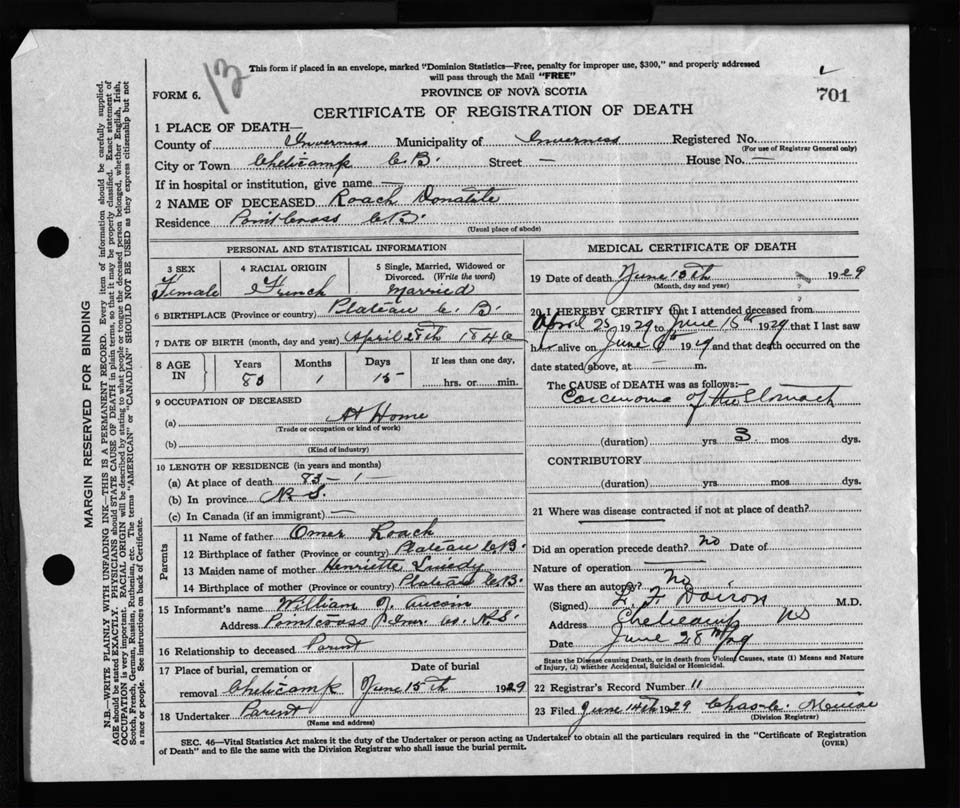 12
This form if placed in an envelope, marked "Dominion Statistics—Free, penalty for improper use, $300," and properly addressed
will pass through the Mail "FREE"
FORM 6.
PROVINCE OF NOVA SCOTIA
701
CERTIFICATE OF REGISTRATION OF DEATH
1 PLACE OF DEATH—
County of Inverness Municipality of Inverness Registered No.
(For use of Registrar General only)
City or Town Cheticamp C B. Street — House No. —
If in hospital or institution, give name —
2 NAME OF DECEASED Roach Donatile
Residence Point Cross C.B.
(Usual place of abode)
PERSONAL AND STATISTICAL INFORMATION
3 SEX
Female
4 RACIAL ORIGIN
French
5 Single, Married, Widowed or
Divorced. (Write the word)
Married
6 BIRTHPLACE (Province or country) Plateau C. B.
7 DATE OF BIRTH (month, day and year) April 28th 1846
8 AGE
IN
Years
83
Months
1
Days
15
If less than one day,
hrs. or min.
9 OCCUPATION OF DECEASED
(a) At Home
(Trade or occupation or kind of work)
(b)
(Kind of industry)
10 LENGTH OF RESIDENCE (in years and months)
(a) At place of death 83 - 1 -
(b) In province N. S.
(c) In Canada (if an immigrant) —
Parents
11 Name of father Omer Roach
12 Birthplace of father (Province or country) Plateau C.B.
13 Maiden name of mother Henriette
14 Birthplace of mother (Province or country) Plateau C.B.
15 Informant's name William J. Aucoin
Address Point Cross Inv. Co. N.S.
16 Relationship to deceased Parent
17 Place of burial, cremation or
removal Cheticamp
Date of burial
June 15th 1929
18 Undertaker Parent
(Name and address)
MEDICAL CERTIFICATE OF DEATH
19 Date of death June 13th 1929
(Month, day and year)
20 I HEREBY CERTIFY that I attended deceased from
April 25 1929 to June 13th 1929 that I last saw
her alive on June 1929 and that death occurred on the
date stated above, at m.
The CAUSE of DEATH was as follows:—
Carcinoma of the Stomach
(duration) yrs 3 mos. dys.
CONTRIBUTORY
(duration) yrs. mos. dys.
21 Where was disease contracted if not at place of death?
Did an operation precede death? no Date of
Nature of operation
Was there an autopsy? No
(Signed) L. F. Doiron M.D.
Address Cheticamp NS
Date June 28th/29
State the Disease causing Death, or in death from Violent Causes, state (1) Means and Nature
of Injury, (2) whether Accidental, Suicidal or Homicidal.
22 Registrar's Record Number 11
23 Filed June 14th 1929 Chas. C.
(Division Registrar)
SEC. 46—Vital Statistics Act makes it the duty of the Undertaker or person acting as Undertaker to obtain all the particulars required in the "Certificate of Registration
of Death" and to file the same with the Division Registrar who shall issue the burial permit.
(OVER)
MARGIN RESERVED FOR BINDING
N.B.—WRITE PLAINLY WITH UNFADING INK—THIS IS A PERMANENT RECORD. Every item of information should be carefully supplied.
AGE should be stated EXACTLY. PHYSICIANS should STATE CAUSE OF DEATH in plain terms, so that it may be properly classified. Exact statement of
OCCUPATION is very important. RACIAL ORIGIN will be described by stating to what people or tongue the deceased person belonged, whether English, Irish,
Scotch, French, German, Russian, Ruthenian, etc. The terms "AMERICAN" or "CANADIAN" SHOULD NOT BE USED as they express citizenship but not
a race or people. See instructions on back of Certificate.